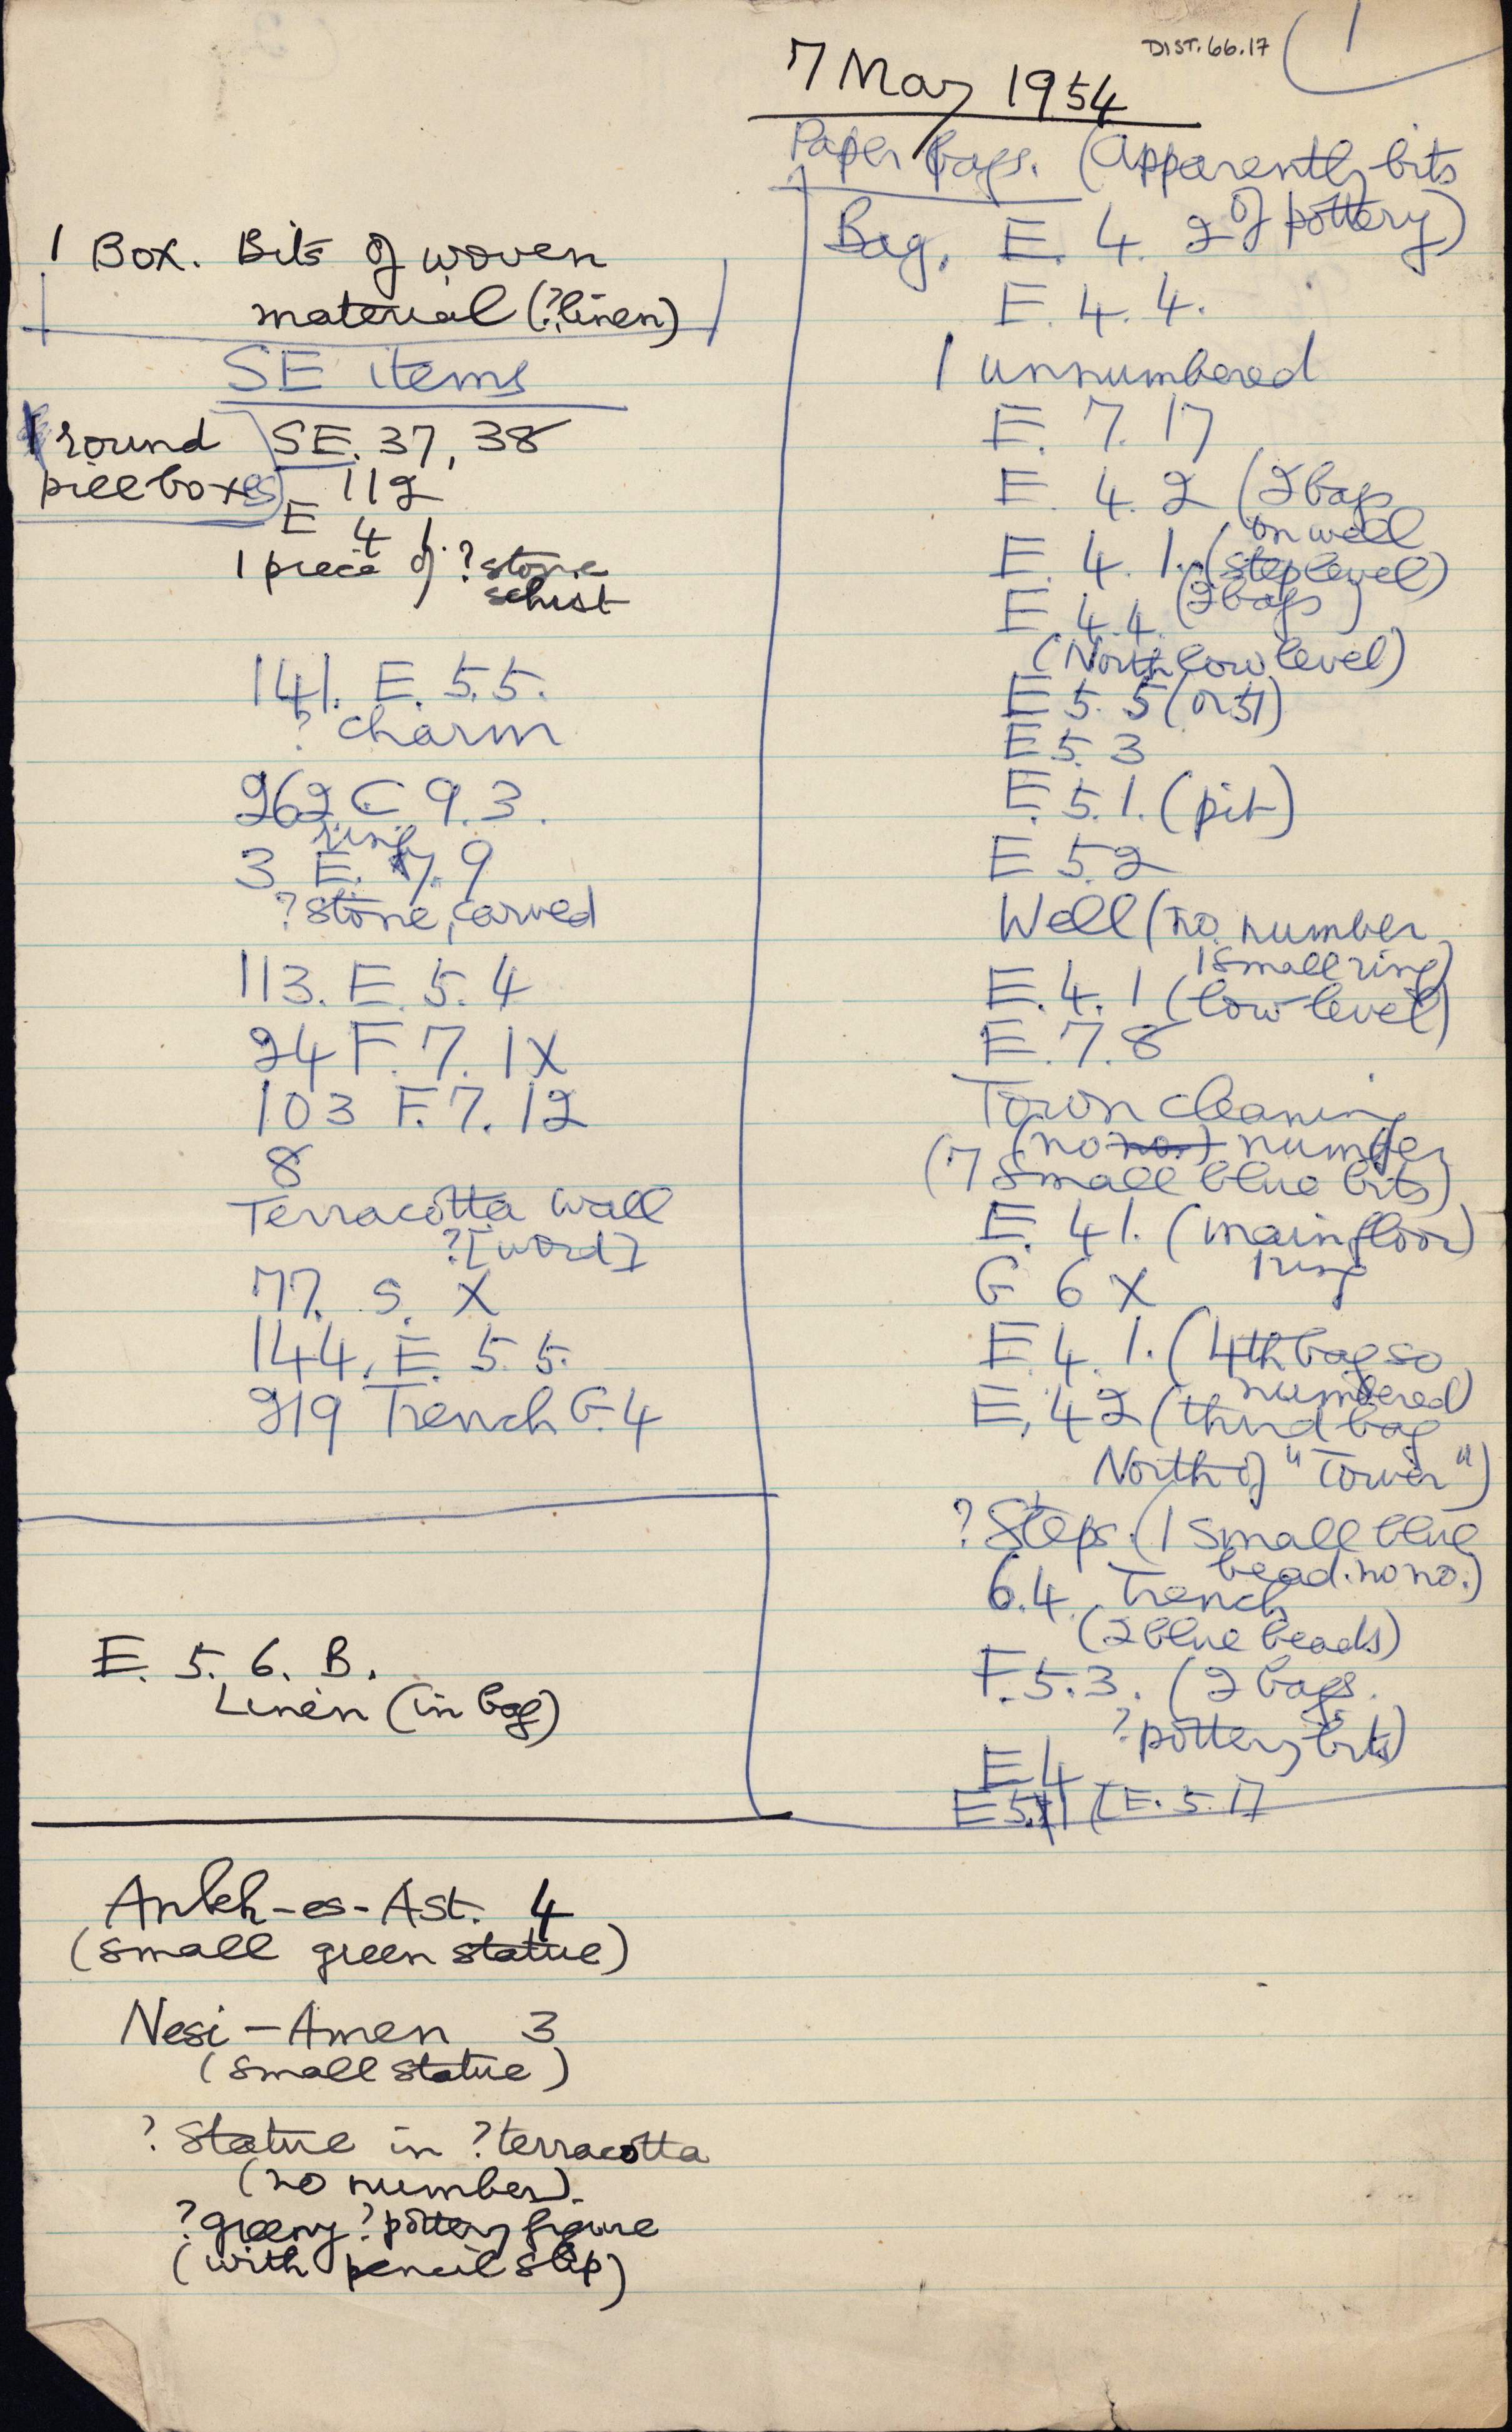 DIST.66.17
1
7 May 1954
1 Box. Bits of woven
material (?linen)
SE items
round SE. 37, 38
pillboxes E 112
E 4 1.
1 piece of ?stone
schist
141. E. 5.5.
? charm
262 C. 9.3.
ring
3 E. 7.9
?stone, carved
113. E. 5.4
24 F. 7. 1X
103 F. 7. 12
8
Terracotta wall
?[word]
77. S. X
144. E. 5.5.
219 Trench G.4
E. 5. 6. B.
Linen (in bag)
Paper bags. (Apparently bits
of pottery)
Bag. E. 4. 2
E. 4. 4.
1 unnumbered
E. 7. 17
E. 4. 2 (2 bags
on well
E. 4. 1. (step level)
E 4.4. (2 bags)
(North low level)
E 5. 5 (or 51)
E 5. 3
E. 5. 1. (pit)
E 5.2
Well (no number
1 small ring)
E. 4. 1 (low level)
E. 7. 8
Town cleaning
(no no.) number
(7 small blue bits)
E. 4 1. (main floor)
1 ring
G 6 X
E 4. 1. (4th bag so
numbered)
E. 4 2 (third bag
North of "Tower")
? Steps. (1 small blue
bead. no no.)
6.4. Trench
(2 blue beads)
F. 5. 3. (2 bags.
?pottery bits)
E 4
E 5. 1 [E. 5. 1]
Ankh-es-Ast. 4
(small green statue)
Nesi-Amen 3
(small statue)
? Statue in ?terracotta
(no number).
?greeny ?pottery figure
(with pencil slip)